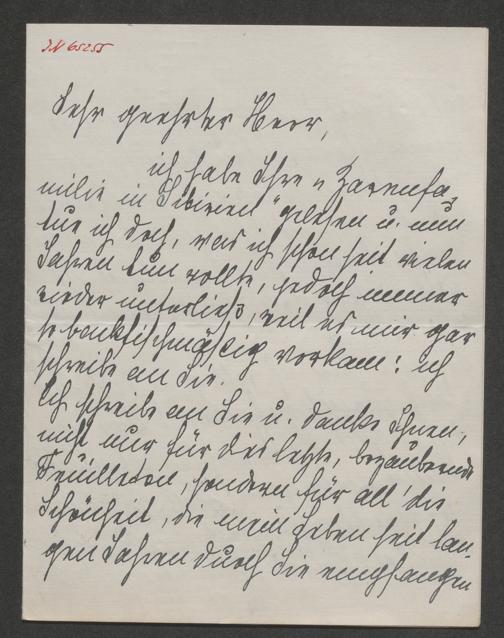 JN 65255
Sehr geehrter Herr,
ich habe Ihre „Zarenfa-
milie in Sibirien" gelesen u. nun
tue ich doch, was ich schon seit vielen
Jahren tun wollte, jedoch immer
wieder unterließ, weil es mir gar
so backfischmäßig vorkam: ich
schreibe an Sie.
Ich schreibe an Sie u. danke Ihnen,
nicht nur für dies letzte, bezaubernde
Feuilleton, sondern für all' die
Schönheit, die mein Leben seit lan-
gen Jahren durch Sie empfangen